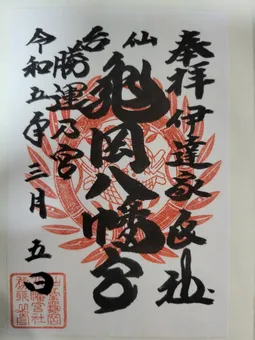 奉拝 伊達家氏社
仙台
亀岡八幡宮
勝運乃宮
令和五年三月五日